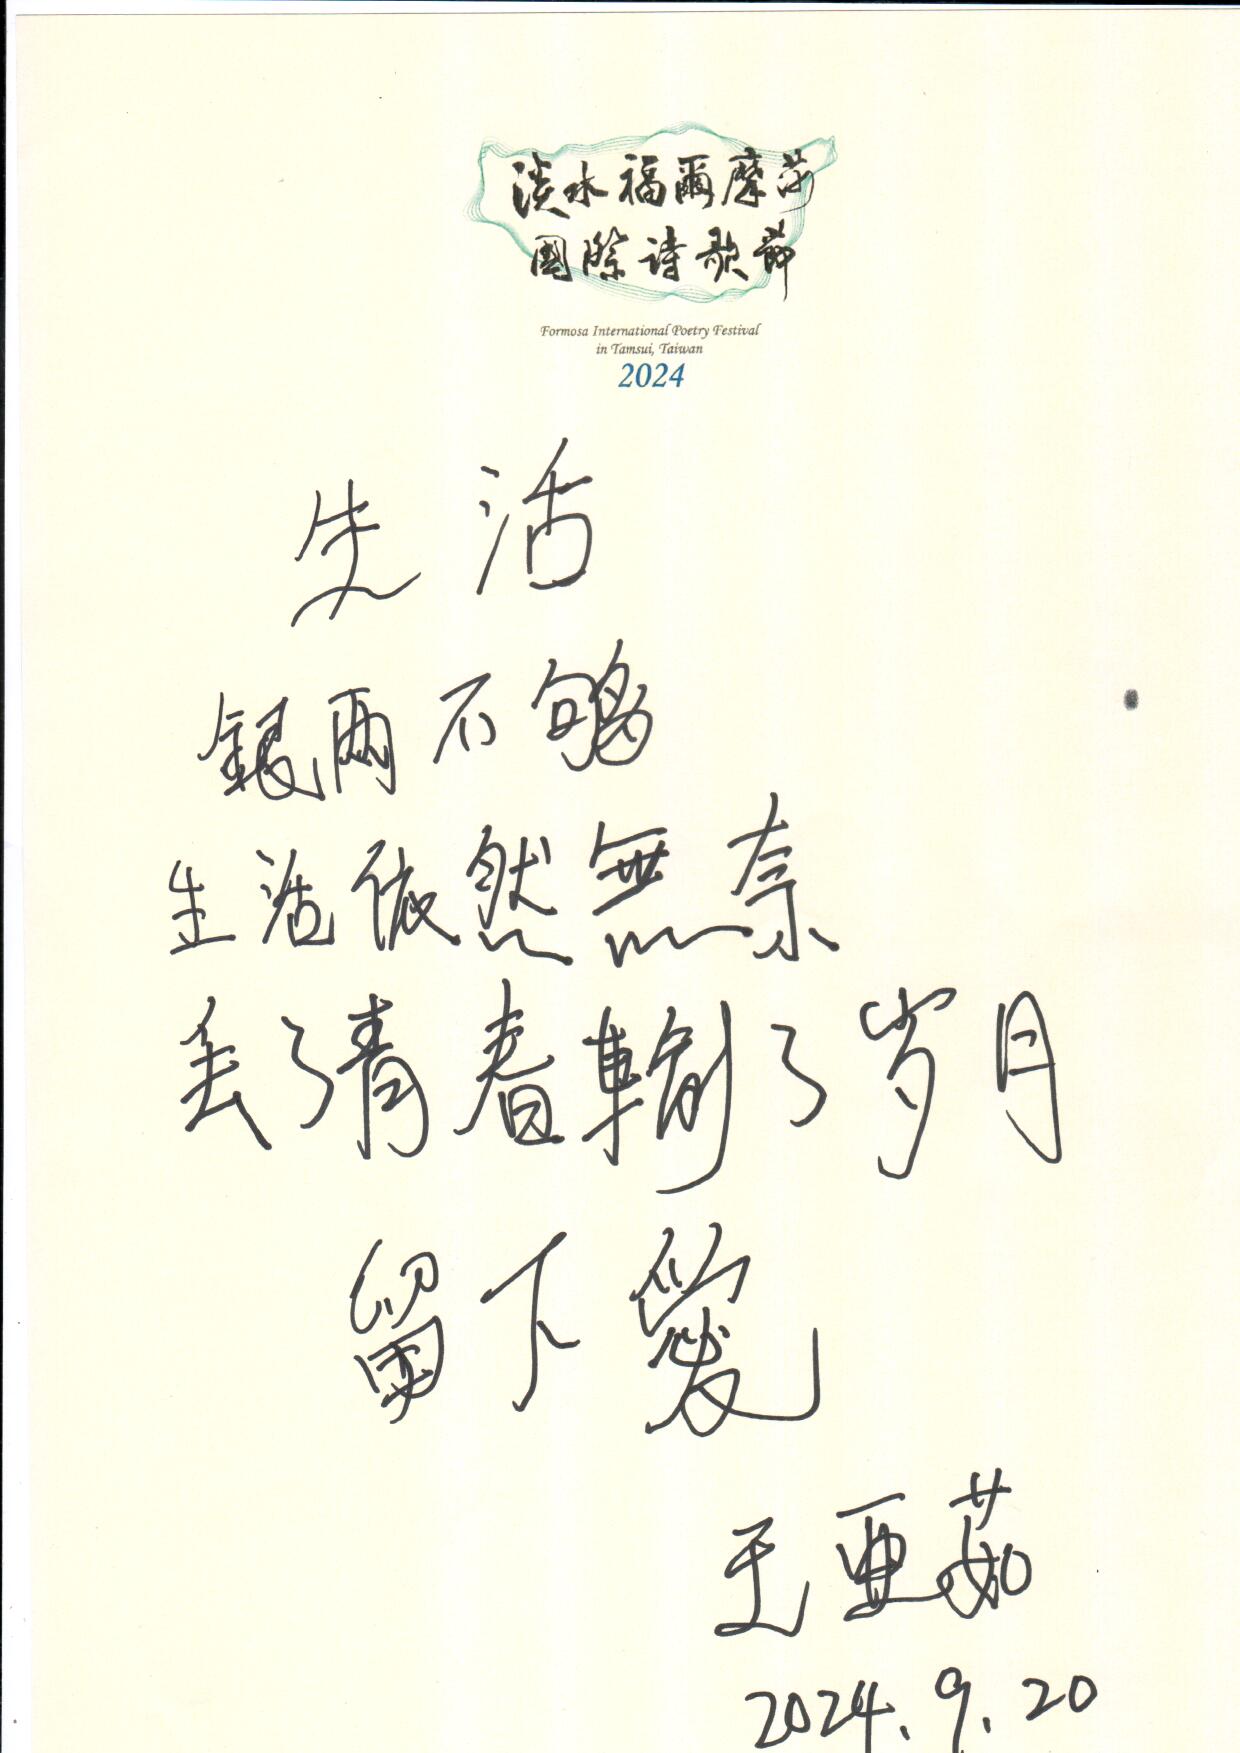 淡水福爾摩莎
國際詩歌節
Formosa International Poetry Festival
in Tamsui, Taiwan
2024
生活
銀兩不够
生活依然無奈
丟了青春輸了岁月
留下愛
王亞茹
2024.9.20